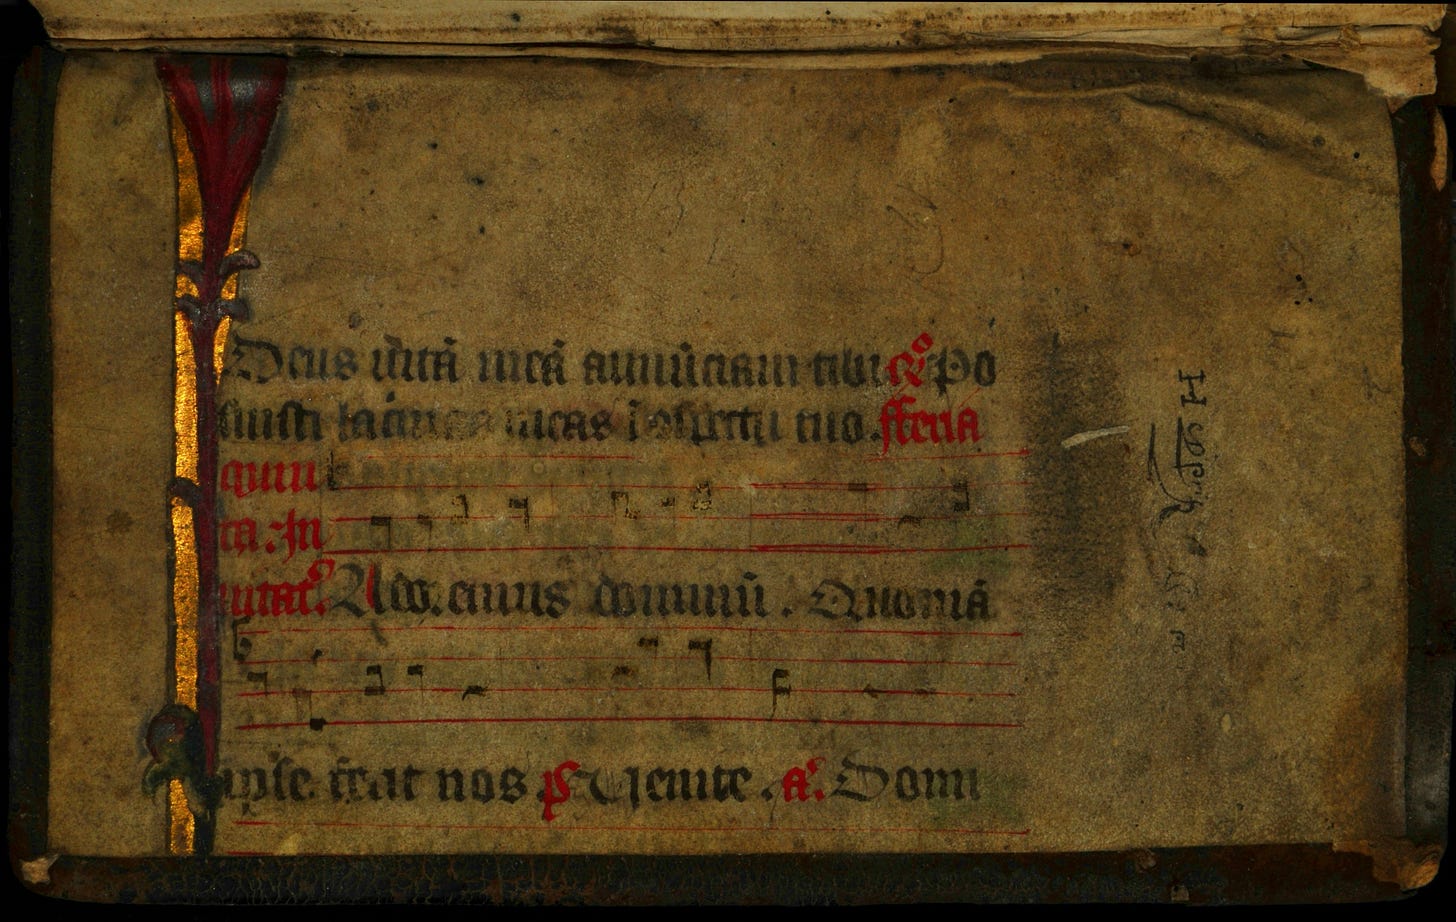 Deus vitā meā annūciaui tibi R̷o Po
suisti lacrimas meas ī ɔspectu tuo. fferia
quin
ta. In
uitat. Ado. emus dominū. Quoniā
ipse fecit nos ps Uenite. a. Domi